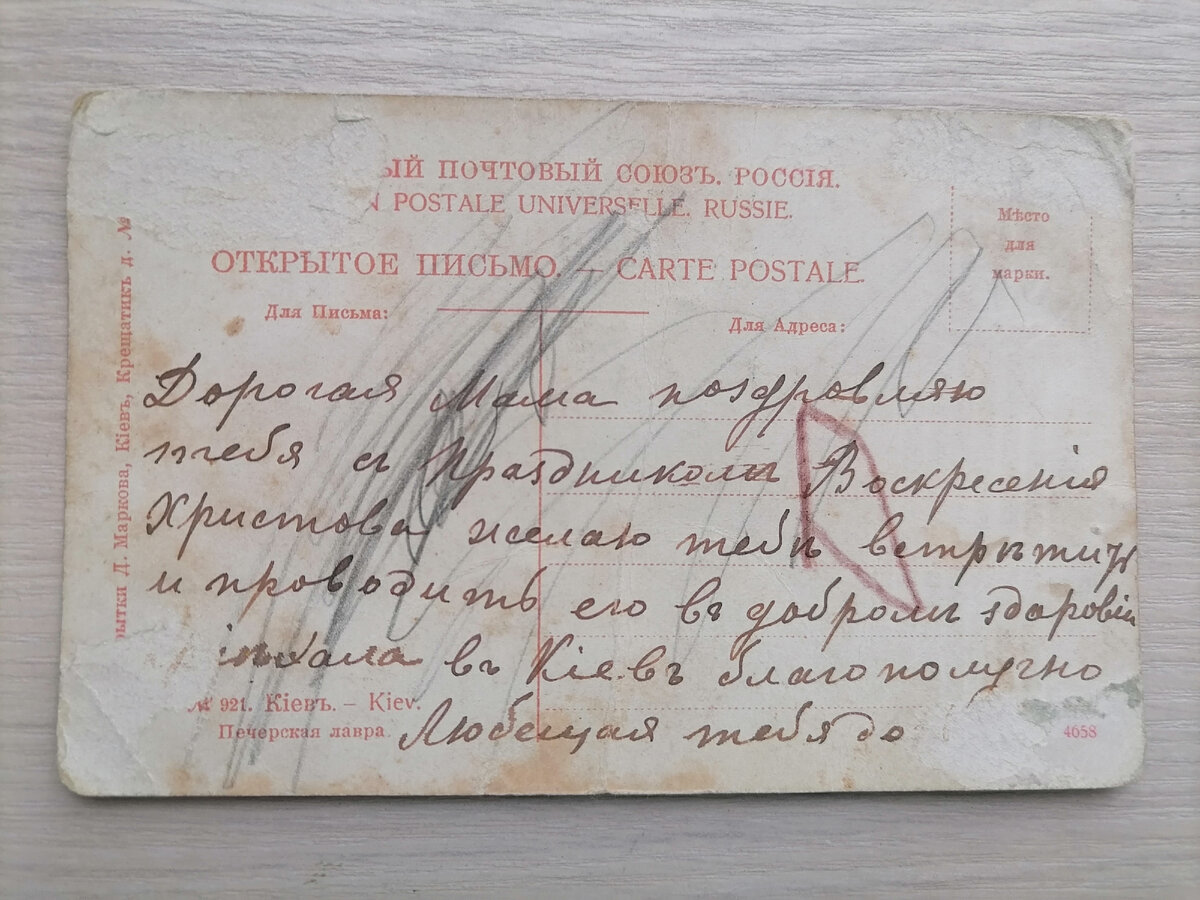 ЫЙ ПОЧТОВЫЙ СОЮЗЪ. РОССІЯ.
N POSTALE UNIVERSELLE. RUSSIE.
ОТКРЫТОЕ ПИСЬМО. — CARTE POSTALE.
Мѣсто
для
марки.
Для Письма:
Для Адреса:
Дорогая Мама поздровляю
тебя съ праздникомъ Воскресенія
Христова желаю тебѣ встрѣтить
и проводить его въ добромъ здоровіи
ріѣхала въ Кіевъ благополучно
Любещая тебя до
№ 921. Кіевъ. – Kiev.
Печерская лавра
4658
рытки Д. Маркова, Кіевъ, Крещатикъ д. №